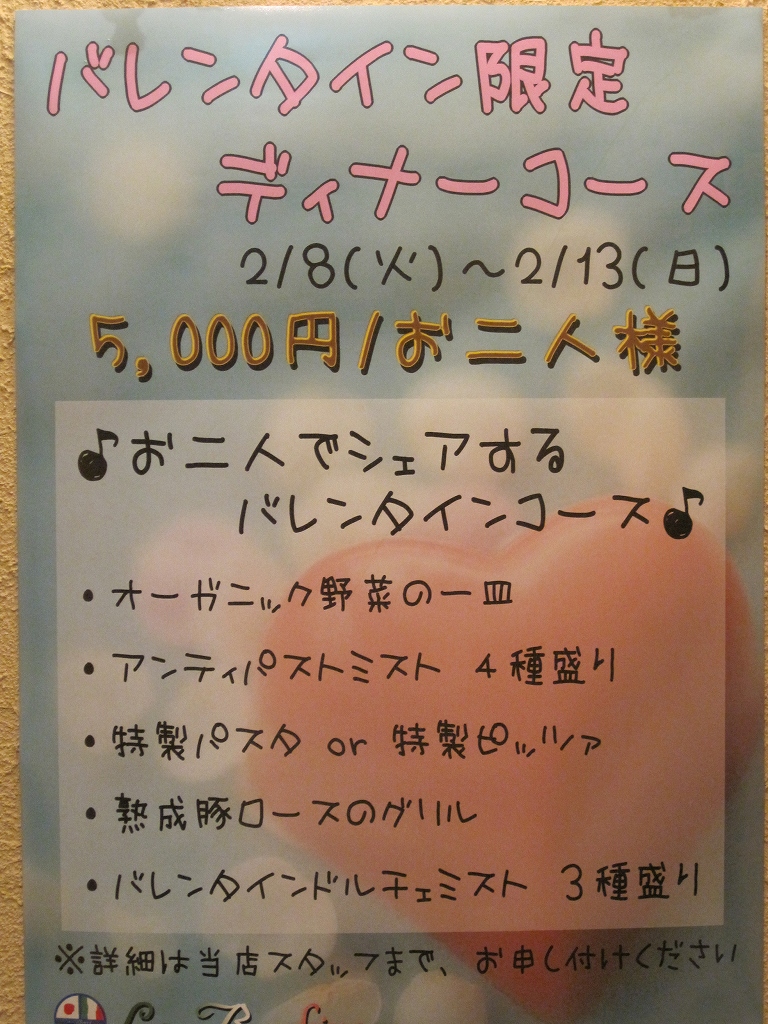 バレンタイン限定
ディナーコース
2/8(火)～2/13(日)
5,000円/お二人様
♪お二人でシェアする
バレンタインコース♪
・オーガニック野菜の一皿
・アンティパストミスト 4種盛り
・特製パスタ or 特製ピッツァ
・熟成豚ロースのグリル
・バレンタインドルチェミスト 3種盛り
※詳細は当店スタッフまで、お申し付けください